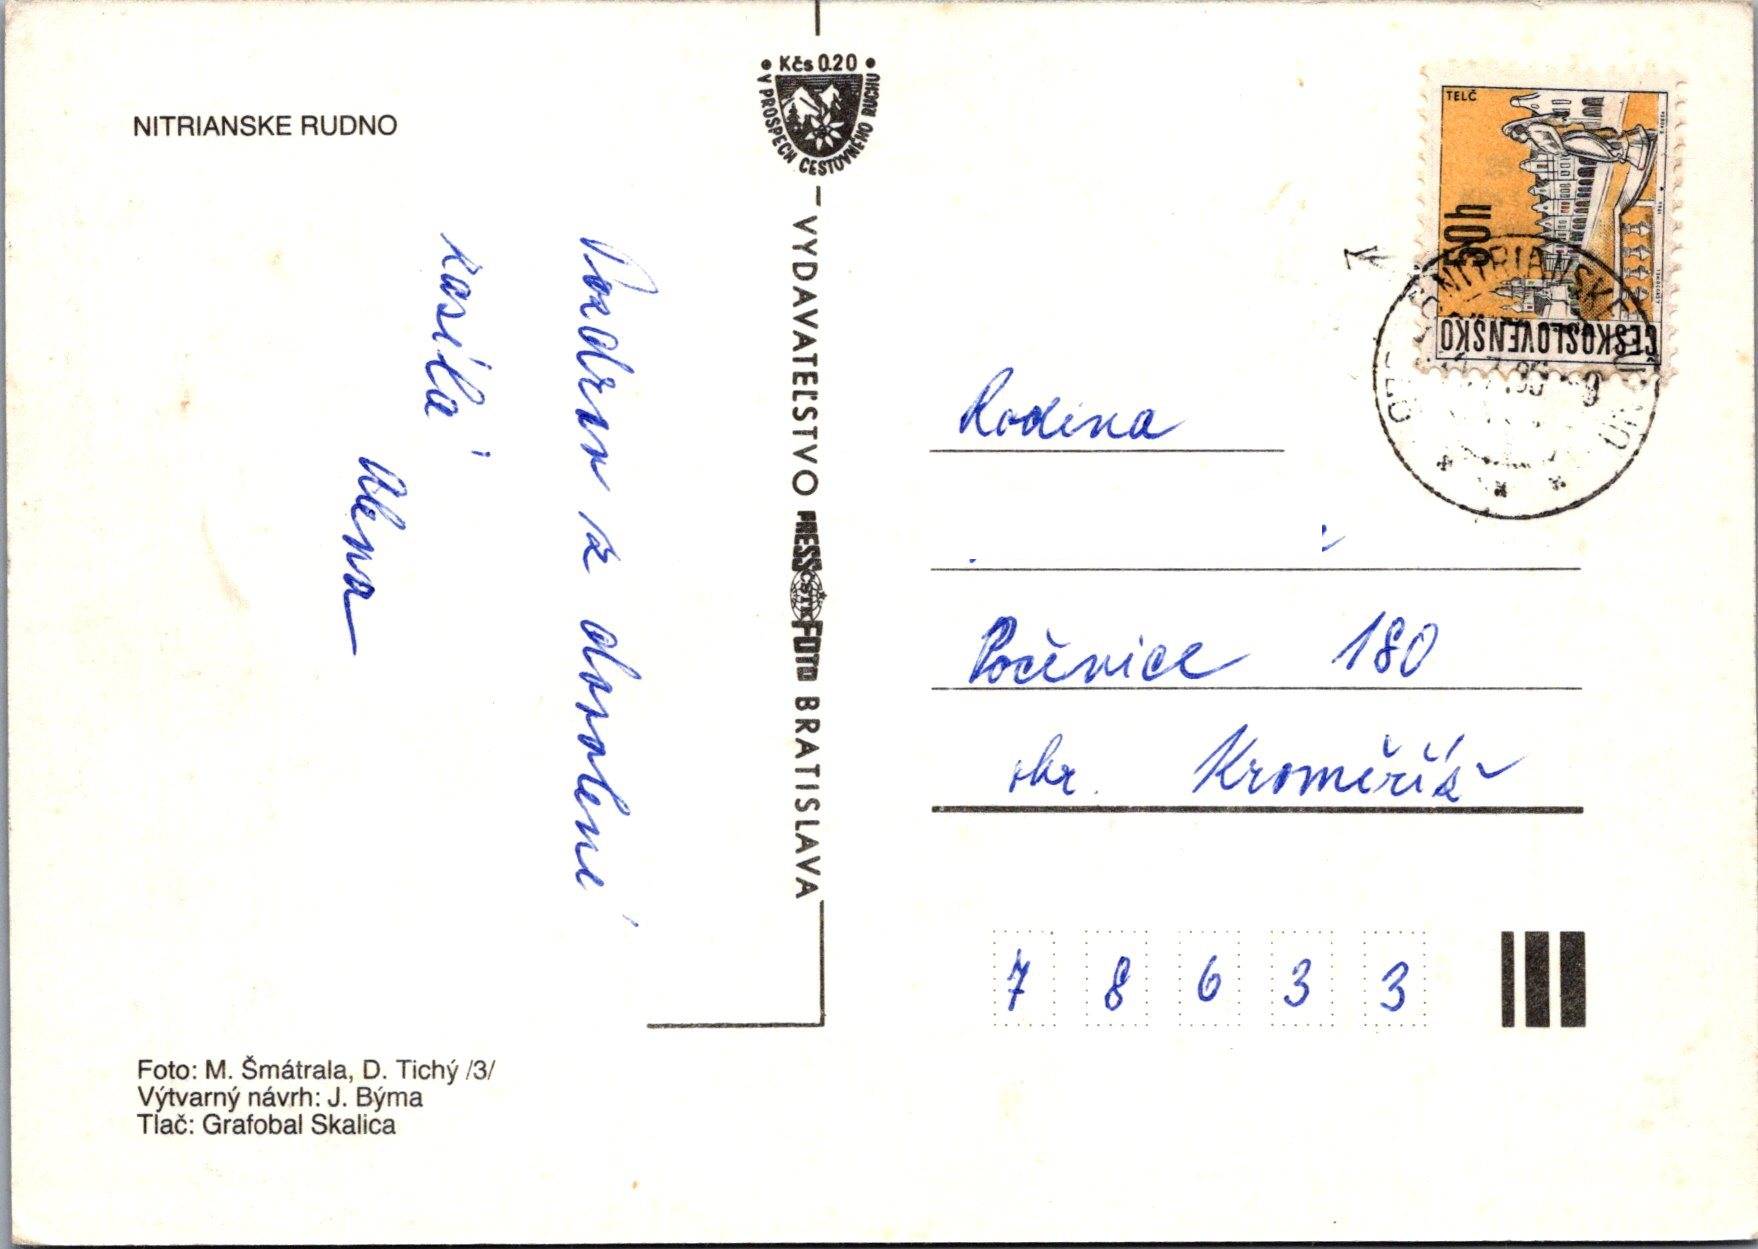 NITRIANSKE RUDNO
Kčs 0.20
V PROSPECH CESTOVNÉHO RUCHU
VYDAVATEĽSTVO PRESSFOTO BRATISLAVA
ČSTK
Pozdrav z dovolené
zasílá
Alena
Foto: M. Šmátrala, D. Tichý /3/
Výtvarný návrh: J. Býma
Tlač: Grafobal Skalica
TELČ
30h
ČESKOSLOVENSKO
NITRIANSKE
Rodina
Počenice 180
okr. Kroměříž
7 8 6 3 3